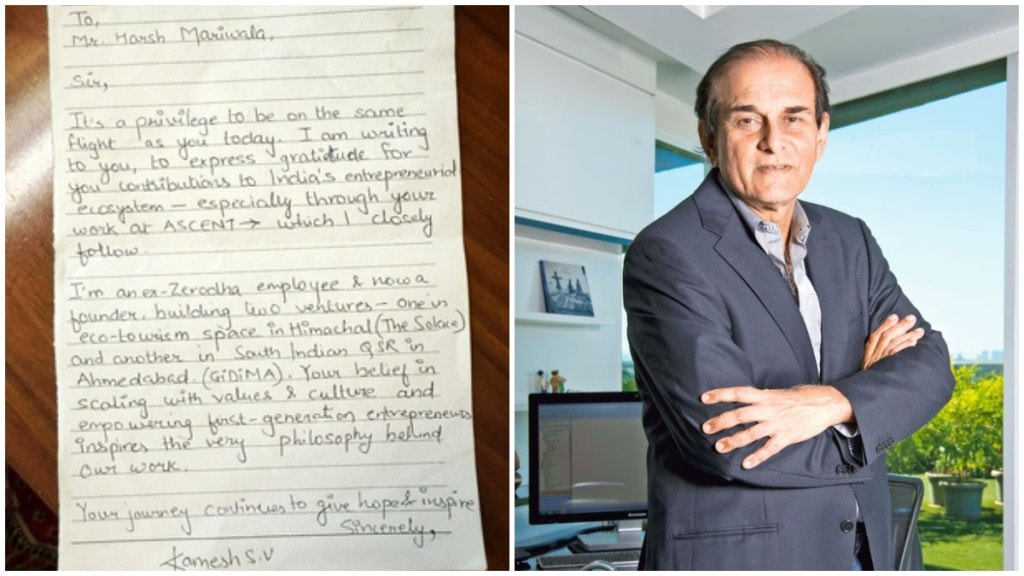 To,
Mr. Harsh Mariwala,
Sir,
It's a privilege to be on the same
flight as you today. I am writing
to you, to express gratitude for
you contributions to India's entrepreneurial
ecosystem – especially through your
work at ASCENT → which I closely
follow.
I'm an ex-Zerodha employee & now a
founder, building two ventures – one in
eco-tourism space in Himachal (The Solace)
and another in South Indian QSR in
Ahmedabad (GiDiMA). Your belief in
scaling with values & culture and
empowering first-generation entrepreneurs
inspires the very philosophy behind
our work.
Your journey continues to give hope & inspire
Sincerely,
Kamesh S.V